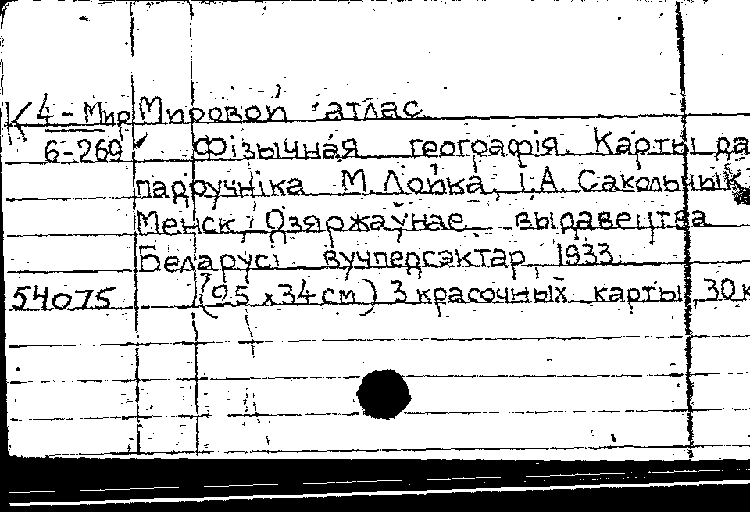 К 4 - Мир Мировой атлас
6-269 Фізычная географія. Карты да
падручніка М. Лойка, І.А. Сакольнік.
Менск, Дзяржаўнае выдавецтва
Беларусі вучпедсэктар, 1933.
54075 (25 х 34 см) 3 красочных карты, 30 к